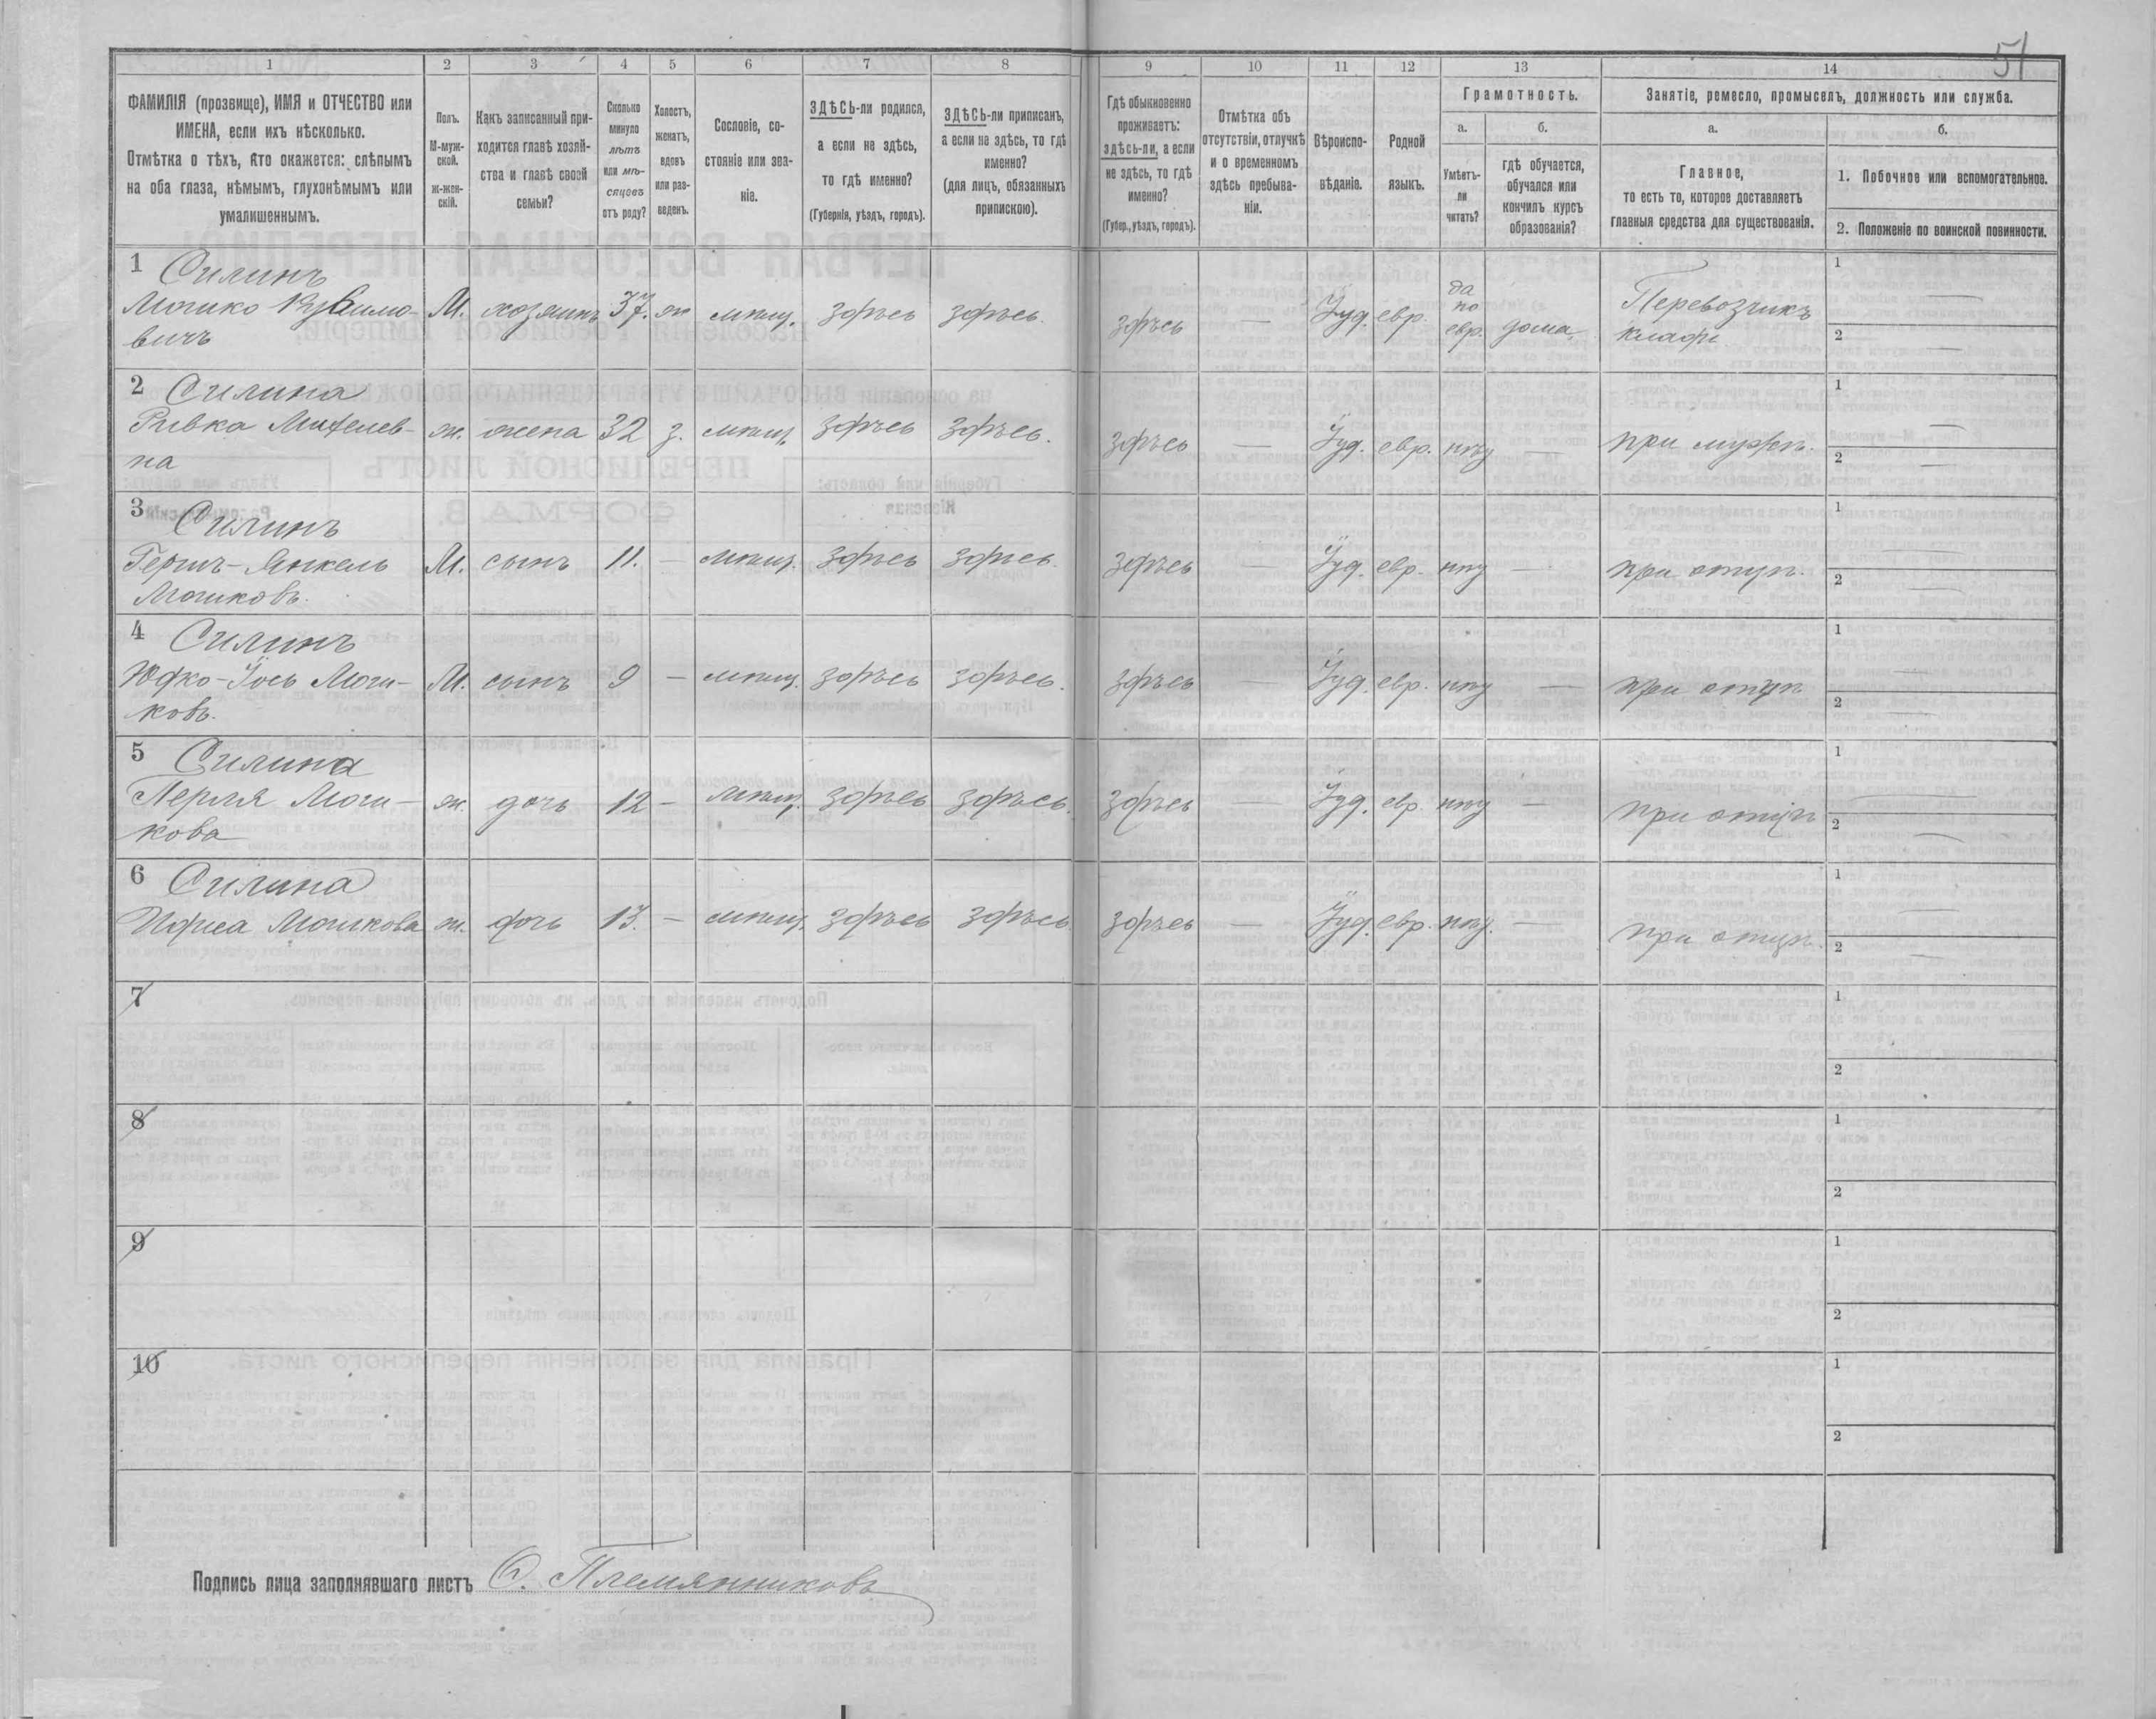 51
1 2 3 4 5 6 7 8 9 10 11 12 13 14
ФАМИЛІЯ (прозвище), ИМЯ и ОТЧЕСТВО или
ИМЕНА, если ихъ нѣсколько.
Отмѣтка о тѣхъ, кто окажется: слѣпымъ
на оба глаза, нѣмымъ, глухонѣмымъ или
умалишеннымъ.
Полъ.
М-муж-
ской.
ж-жен-
скій.
Какъ записанный при-
ходится главѣ хозяй-
ства и главѣ своей
семьи?
Сколько
минуло
лѣтъ
или мѣ-
сяцевъ
отъ роду?
Холостъ,
женатъ,
вдовъ
или раз-
веденъ.
Сословіе, со-
стояніе или зва-
ніе.
ЗДѢСЬ-ли родился,
а если не здѣсь,
то гдѣ именно?
(Губернія, уѣздъ, городъ).
ЗДѢСЬ-ли приписанъ,
а если не здѣсь, то гдѣ
именно?
(для лицъ, обязанныхъ
припискою).
Гдѣ обыкновенно
проживаетъ:
здѣсь-ли, а если
не здѣсь, то гдѣ
именно?
(Губер., уѣздъ, городъ).
Отмѣтка объ
отсутствіи, отлучкѣ
и о временномъ
здѣсь пребыва-
ніи.
Вѣроиспо-
вѣданіе.
Родной
языкъ.
Грамотность.
а.
Умѣетъ-
ли
читать?
б.
гдѣ обучается,
обучался или
кончилъ курсъ
образованія?
Занятіе, ремесло, промыселъ, должность или служба.
а.
Главное,
то есть то, которое доставляетъ
главныя средства для существованія.
б.
1. Побочное или вспомогательное.
2. Положеніе по воинской повинности.
1 Силинъ
Мошко
вичъ
М. хозяинъ 37. ж мѣщ. здѣсь здѣсь. здѣсь — Іуд. евр.
да
по
евр. дома,
Перевозчикъ
клади
1 —
2 —
2 Силина
Ривка
на
ж. жена 32 з. мѣщ. здѣсь здѣсь. здѣсь — Іуд. евр. нѣт — при мужѣ.
1 —
2 —
3 Силинъ
Гершъ-Янкель
Мошковъ.
М. сынъ 11. — мѣщ. здѣсь здѣсь. здѣсь — Іуд. евр. нѣт — при отцѣ.
1 —
2 —
4 Силинъ
Юдко-Іось Мош-
ковъ.
М. сынъ 9 — мѣщ. здѣсь здѣсь. здѣсь — Іуд. евр. нѣт — при отцѣ
1 —
2 —
5 Силина
Перля Мош-
кова
ж. дочь 12 — мѣщ. здѣсь здѣсь. здѣсь — Іуд. евр. нѣт — при отцѣ
1 —
2 —
6 Силина
Мошкова ж. дочь 13. — мѣщ. здѣсь здѣсь здѣсь — Іуд. евр. нѣт. — при отцѣ.
1 —
2 —
7
1
2
8
1
2
9
1
2
10
1
2
Подпись лица заполнявшаго листъ С. Племянниковъ